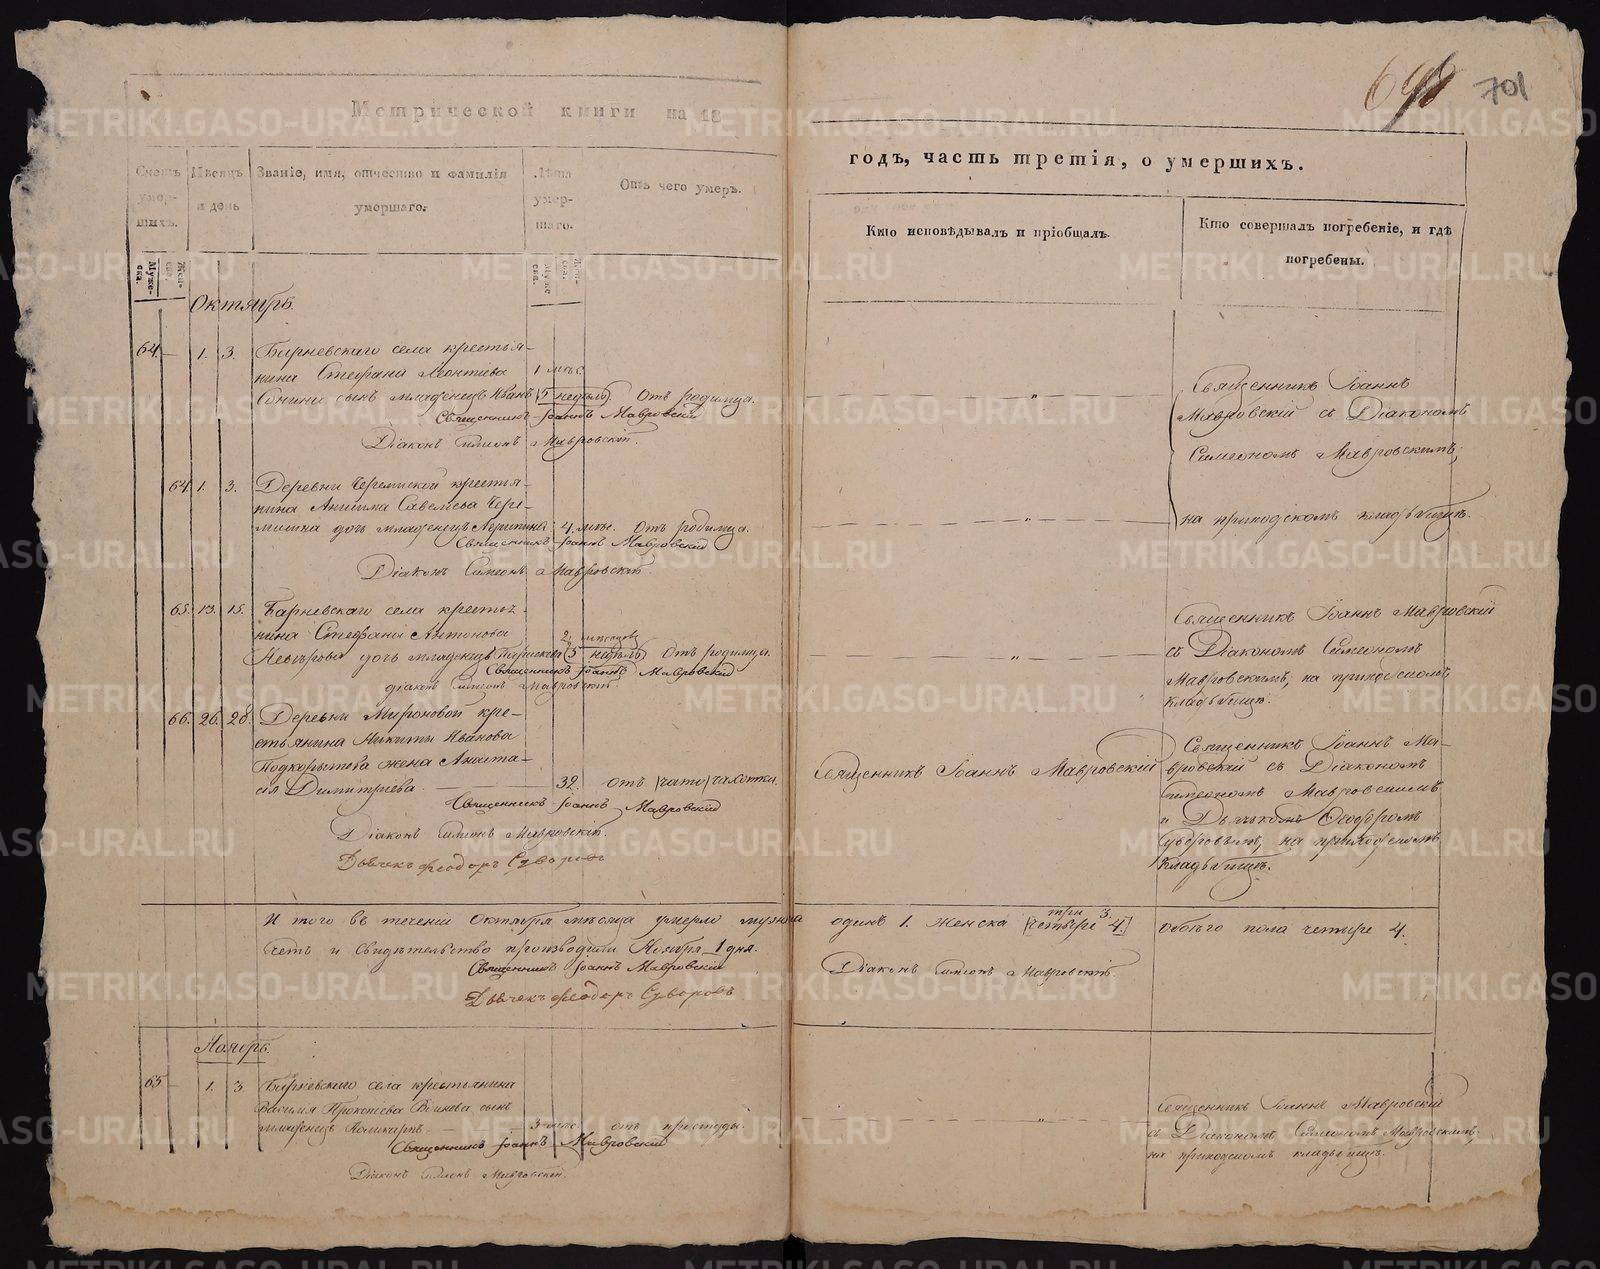 698 701
Метрической книги на 18
годъ, часть третія, о умершихъ.
Счетъ умер-шихъ.
Муже-ска.
Жен-ска.
Мѣсяцъ и день
Званіе, имя, отчество и фамилія умершаго.
Лѣта умер-шаго.
Муже-ска.
Жен-ска.
Отъ чего умеръ.
Кто исповѣдывалъ и пріобщалъ.
Кто совершалъ погребеніе, и гдѣ погребены.
Октябрь.
64. 1. 3. Барневскаго села крестья-
нина Стефана Леонтьева 1 мѣс.
сынъ младенецъ Иванъ (5 недѣль) Отъ родимца.
Священникъ Іоаннъ Мавровскій
Діаконъ Симеонъ Мавровскій.
Священникъ Іоаннъ
Мавровскій съ Діакономъ
Симеономъ Мавровскимъ,
на приходскомъ кладбищѣ.
64 1. 3. Деревни Черемиской крестья-
нина Савельева Чере-
мисина дочь младенецъ 4 мѣс. Отъ родимца.
Священникъ Іоаннъ Мавровскій
Діаконъ Симеонъ Мавровскій.
65. 13. 15. Барневскаго села крестья-
нина Стефана Антонова 2 мѣсяцовъ
дочь младенецъ (5 недѣль) Отъ родимца.
Священникъ Іоаннъ Мавровскій
діаконъ Симеонъ Мавровскій.
Священникъ Іоаннъ Мавровскій
съ Діакономъ Симеономъ
Мавровскимъ, на приходскомъ
кладбищѣ.
66. 26. 28. Деревни Мироновой кре-
стьянина Никиты Иванова
Подкорытова жена Анаста-
сія Димитріева. 32. отъ (чато) чахотки.
Священникъ Іоаннъ Мавровскій
Діаконъ Симеонъ Мавровскій.
Дьячекъ Феодоръ Суворовъ
Священникъ Іоаннъ Мавровскій
Священникъ Іоаннъ Ма-
вровскій съ Діакономъ
Симеономъ Мавровскимъ
и Дьячкомъ Ѳеодоромъ
Суворовымъ, на приходскомъ
кладбищѣ.
И того въ теченіи Октября мѣсяца умерло мужеска одинъ 1. женска три 3. (четыре 4.) обоего пола четыре 4.
Счетъ и свидѣтельство производили Ноября 1 дня.
Священникъ Іоаннъ Мавровскій
Діаконъ Симеонъ Мавровскій.
Дьячекъ Феодоръ Суворовъ
Ноябрь.
65 1. 3. Барневскаго села крестьянина
Василія Прокопіева сынъ
младенецъ 3 мѣс отъ простуды.
Священникъ Іоаннъ Мавровскій
Діаконъ Симеонъ Мавровскій.
Священникъ Іоаннъ Мавровскій
съ Діакономъ Симеономъ Мавровскимъ,
на приходскомъ кладбищѣ.
METRIKI.GASO-URAL.RU